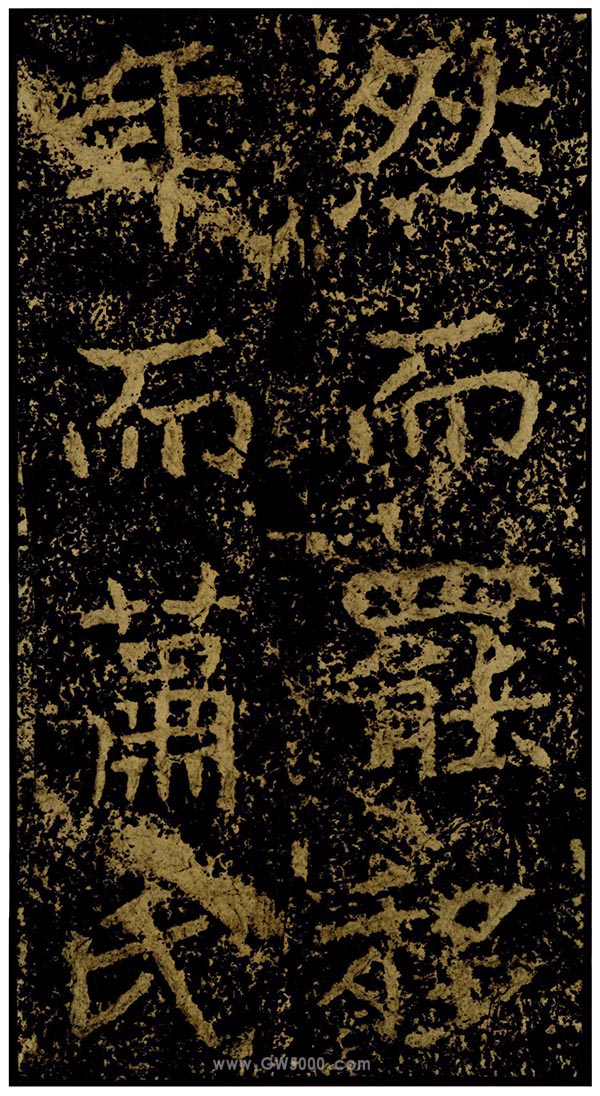 然而罷
年而蕭氏
www.GW5000.com